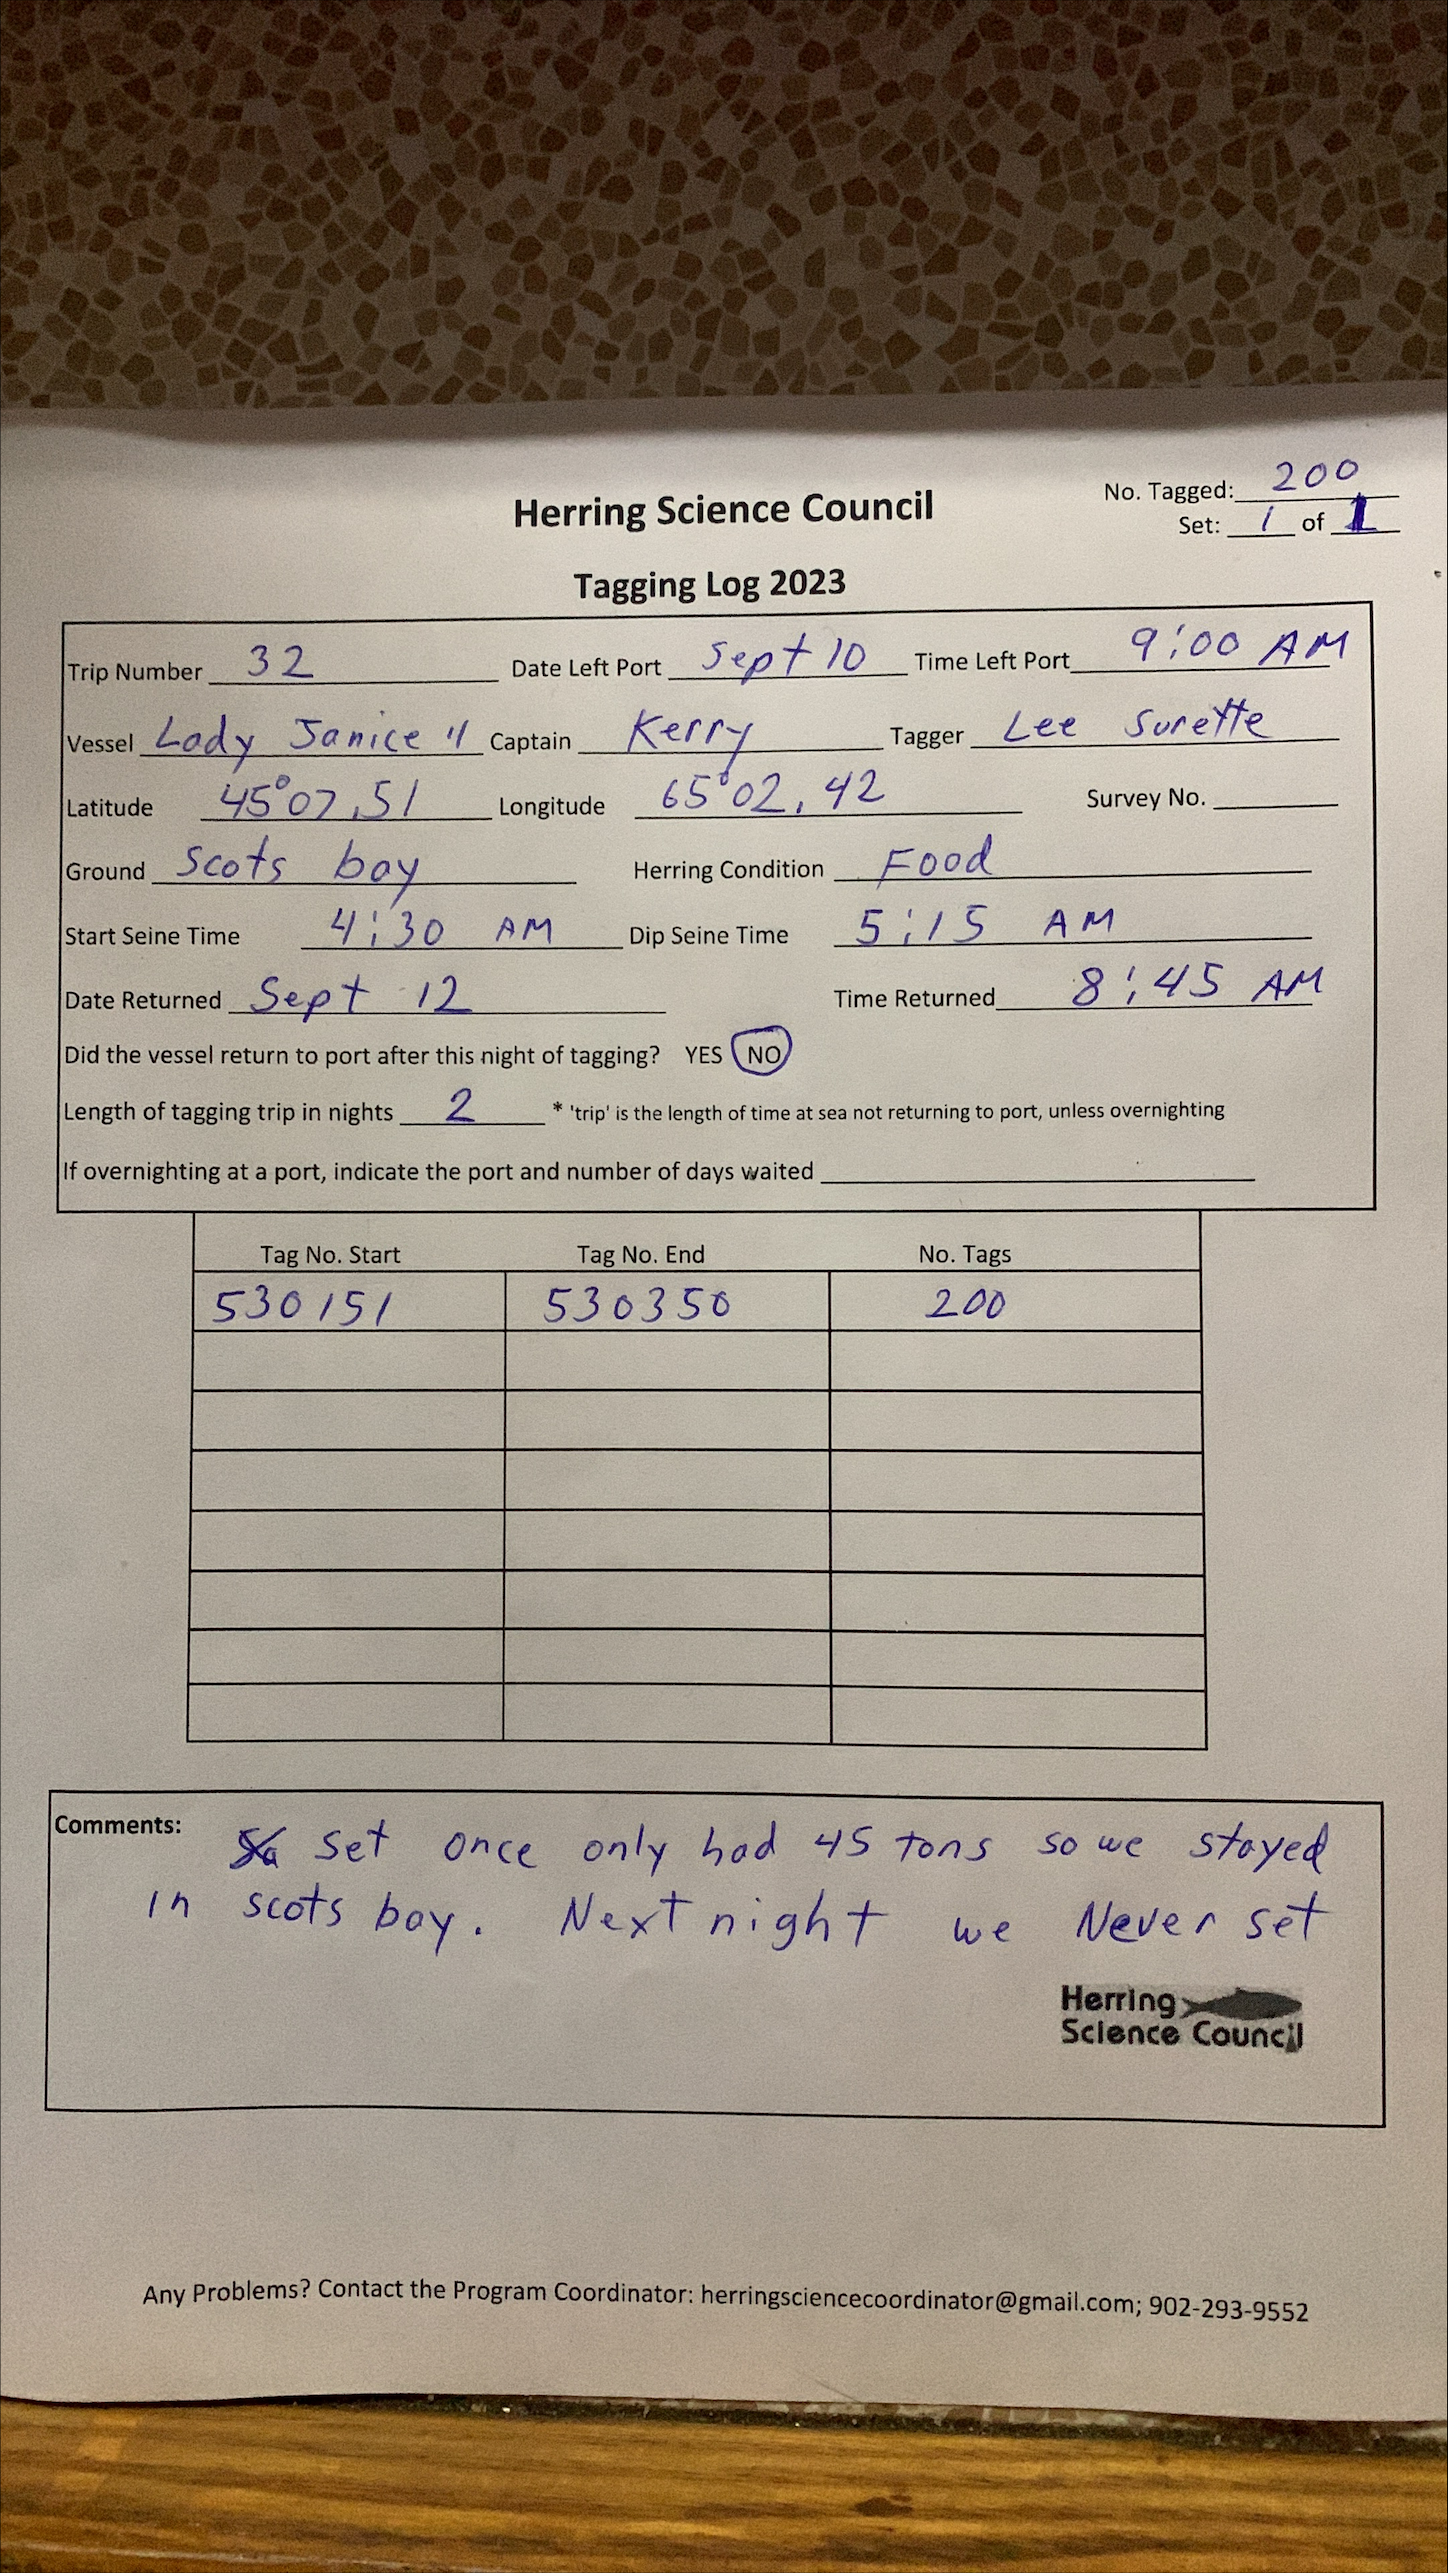 No. Tagged: 200
Herring Science Council
Set: 1 of 1
Tagging Log 2023
Trip Number 32 Date Left Port Sept 10 Time Left Port 9:00 AM
Vessel Lady Janice 11 Captain Kerry Tagger Lee Surette
Latitude 45°07.51 Longitude 65°02.42 Survey No.
Ground Scots bay Herring Condition Food
Start Seine Time 4:30 AM Dip Seine Time 5:15 AM
Date Returned Sept 12 Time Returned 8:45 AM
Did the vessel return to port after this night of tagging? YES NO
Length of tagging trip in nights 2 * 'trip' is the length of time at sea not returning to port, unless overnighting
If overnighting at a port, indicate the port and number of days waited
Tag No. Start Tag No. End No. Tags
530151 530350 200
Comments: set once only had 45 tons so we stayed
in scots bay. Next night we Never set
Herring
Science Council
Any Problems? Contact the Program Coordinator: herringsciencecoordinator@gmail.com; 902-293-9552